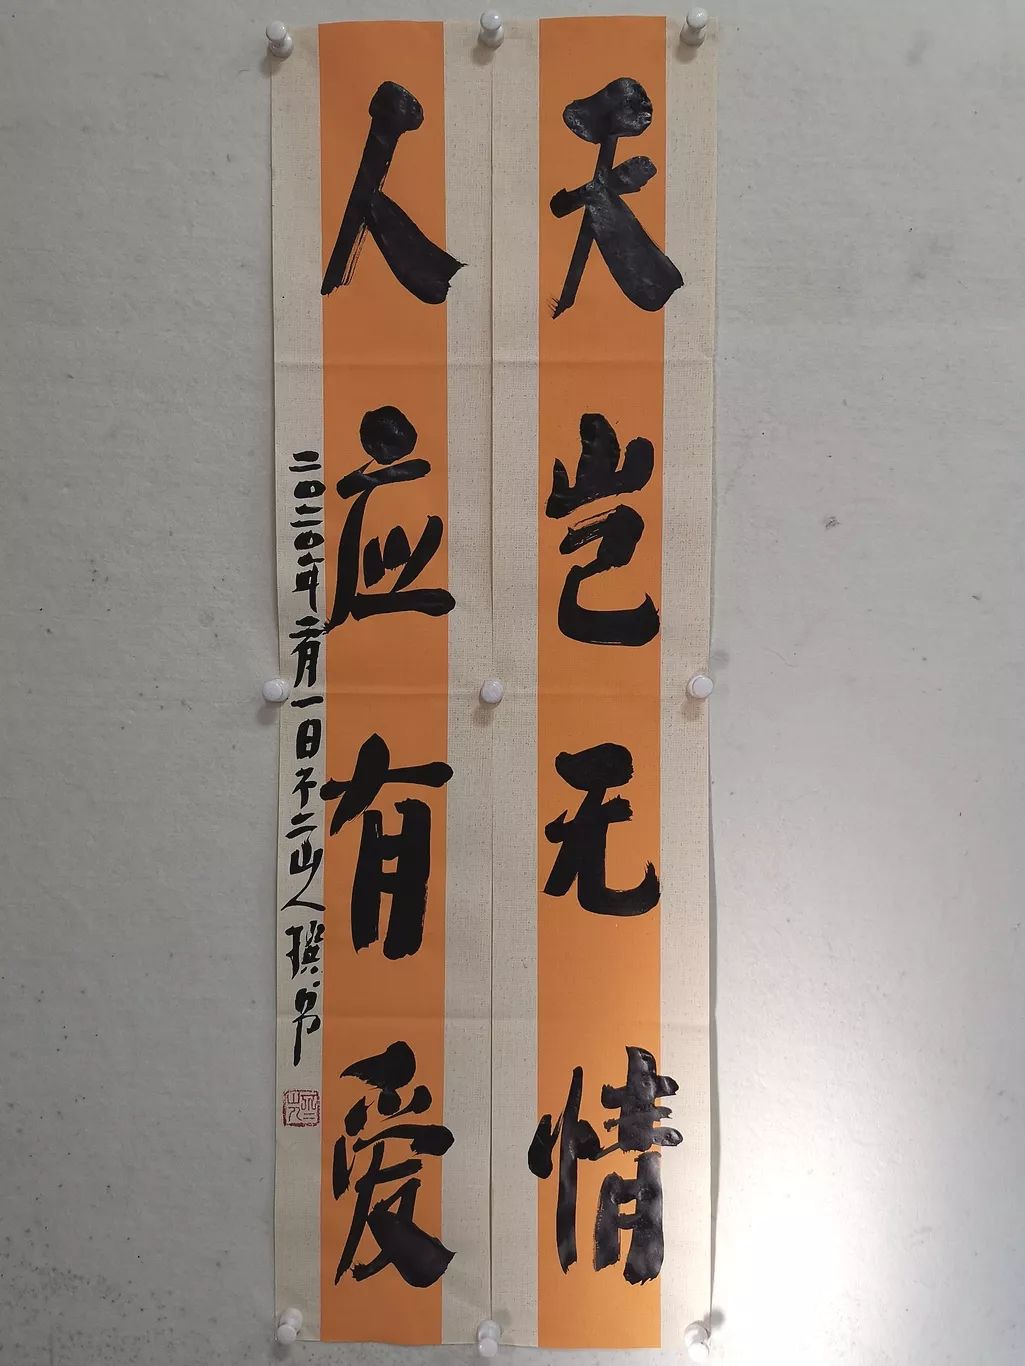 天岂无情
人应有爱
二〇二〇年二月一日不二山人撰书
不二山人